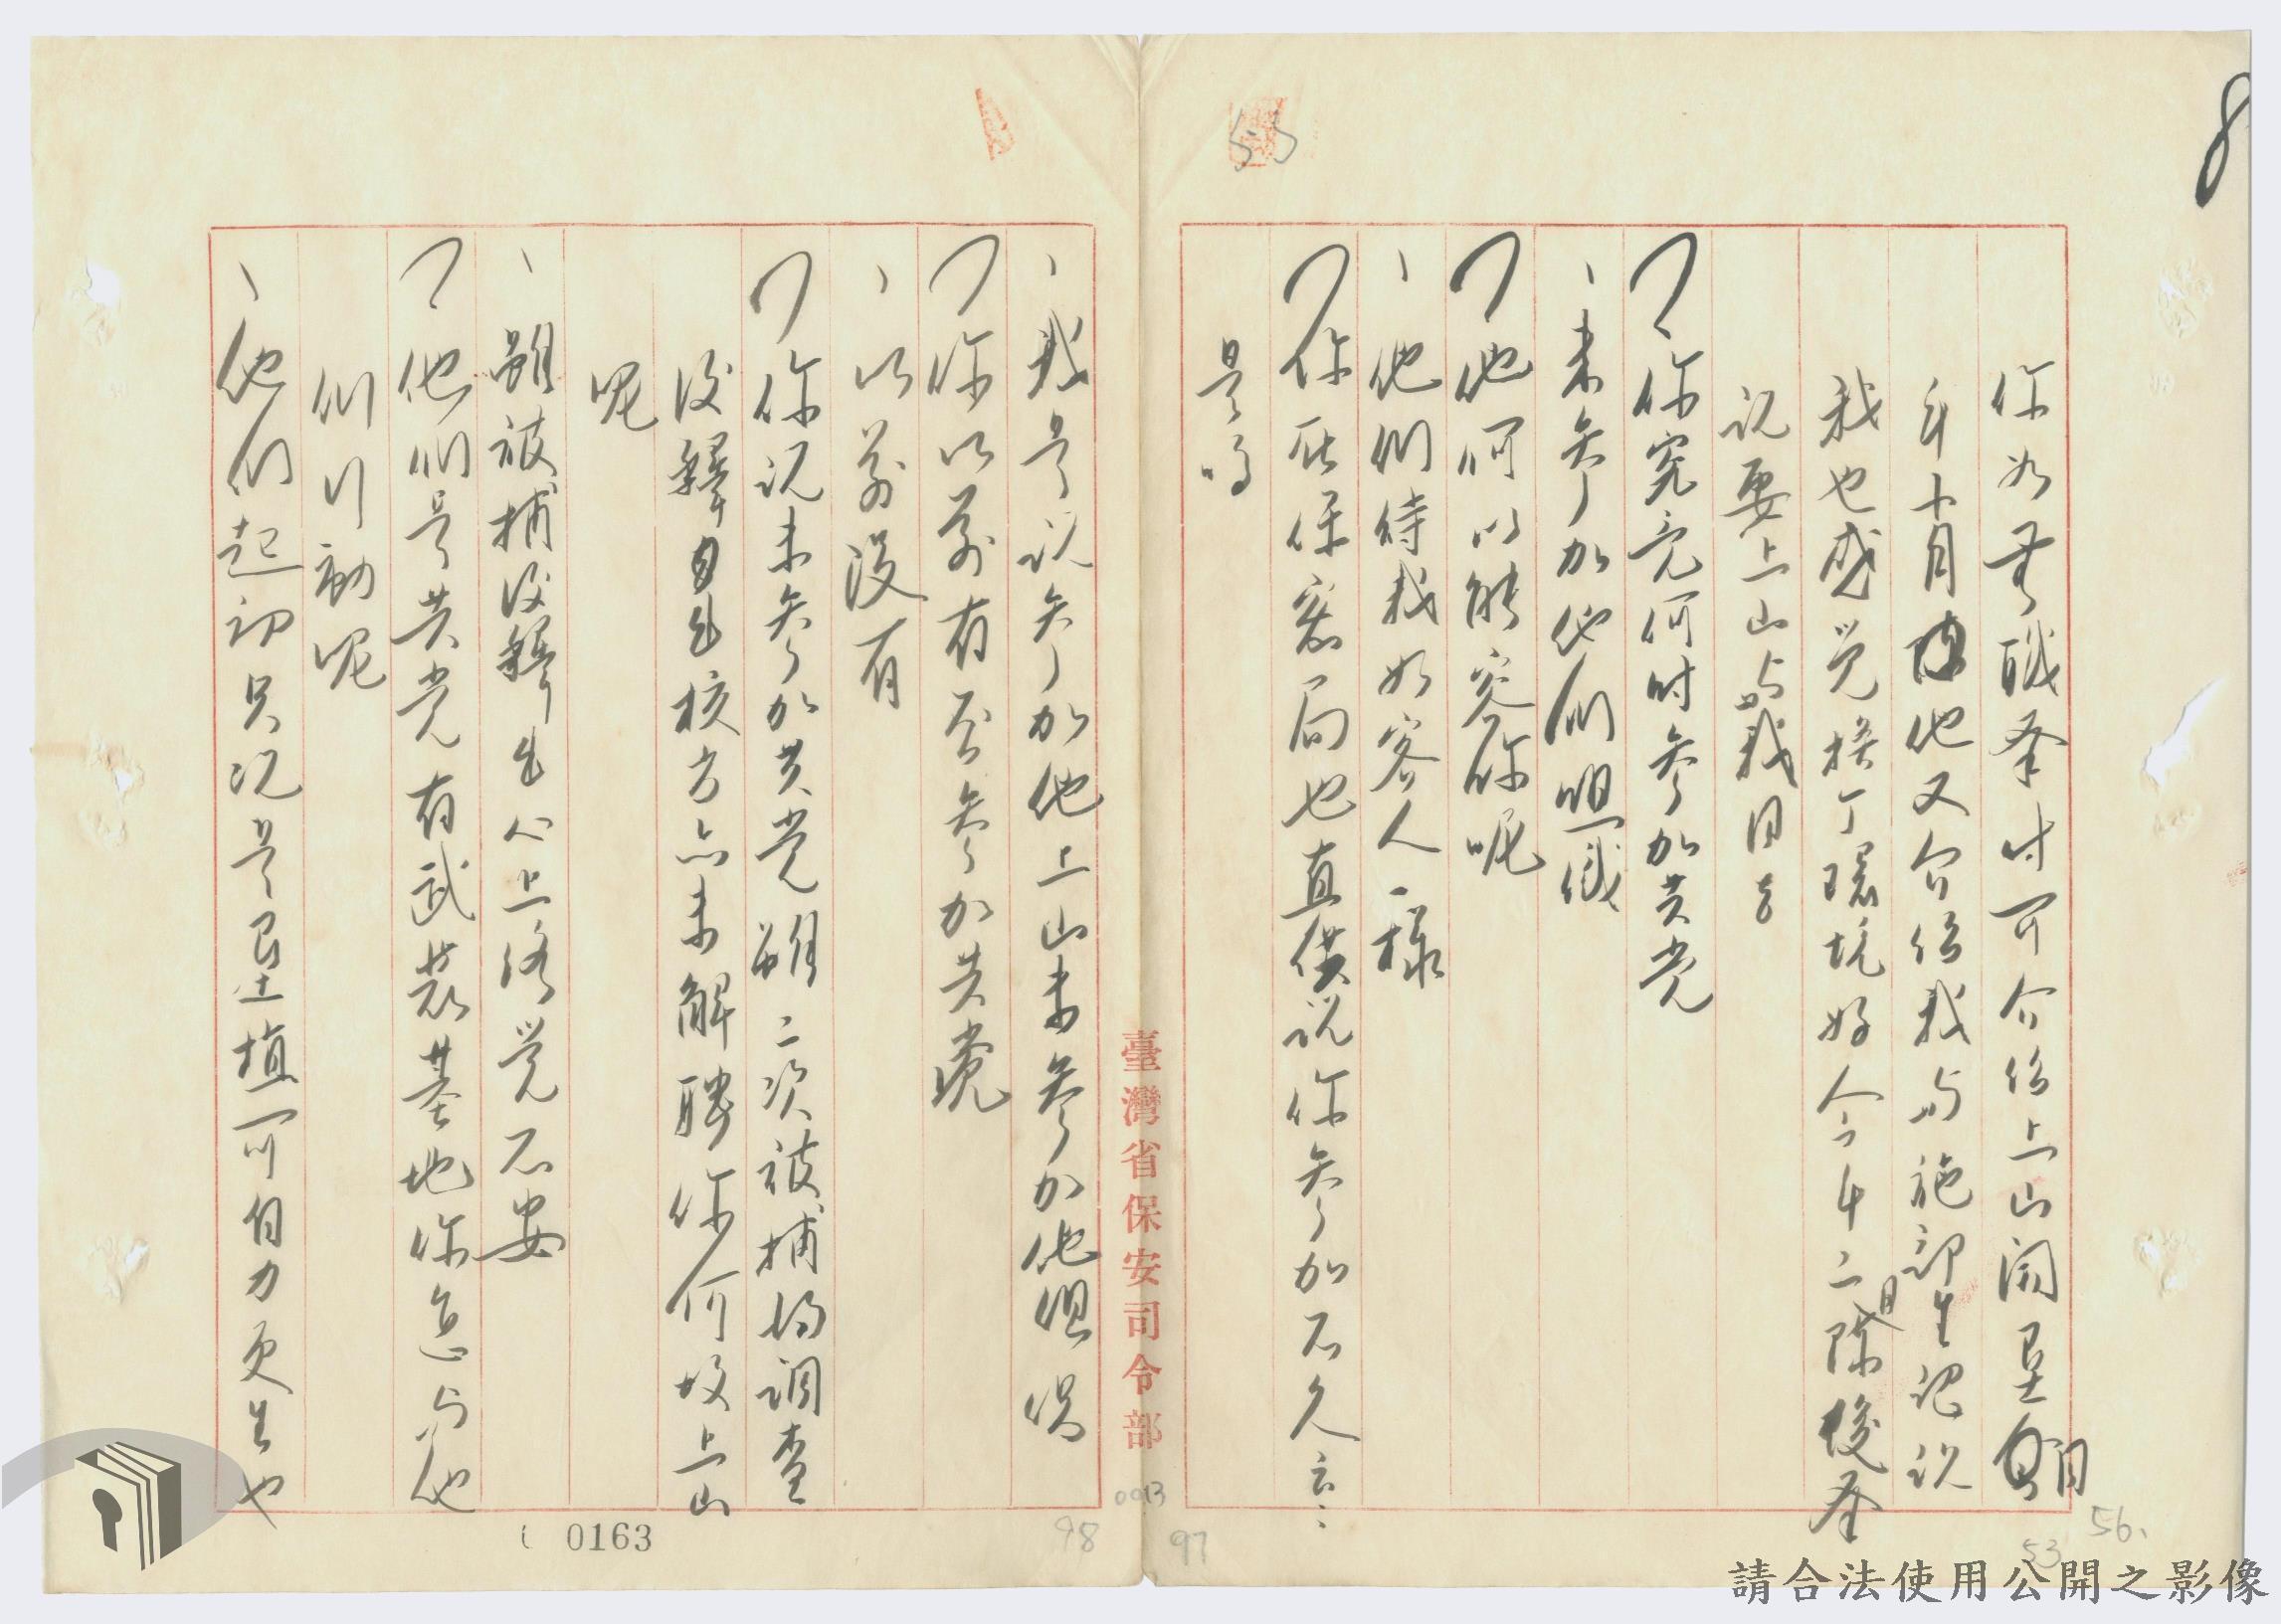 8
55
你如無職業時可介紹上山開墾
年十月他又介紹我与施部生認識
我也感覚換了環境好今年二月
說要上山与我同去
？你究竟何時參加共党
、未參加他們組織
？他何以能容你呢
、他們待我如客人一樣
？你在保密局也直供說你參加不久云云
是嗎
臺灣省保安司令部
、我是說參加他上山未參加他組織
？你以前有否參加共党
、以前沒有
？你說未參加共党雖二次被捕均調查
後釋回且校方亦未解聘你何故上山
呢
、雖被捕後釋出心上終覚不安
？他們是共党有武裝基地你怎与他
們行動呢
、他們起初只說是墾植可自力更生也
0013
97
98
0163
53
56、
請合法使用公開之影像